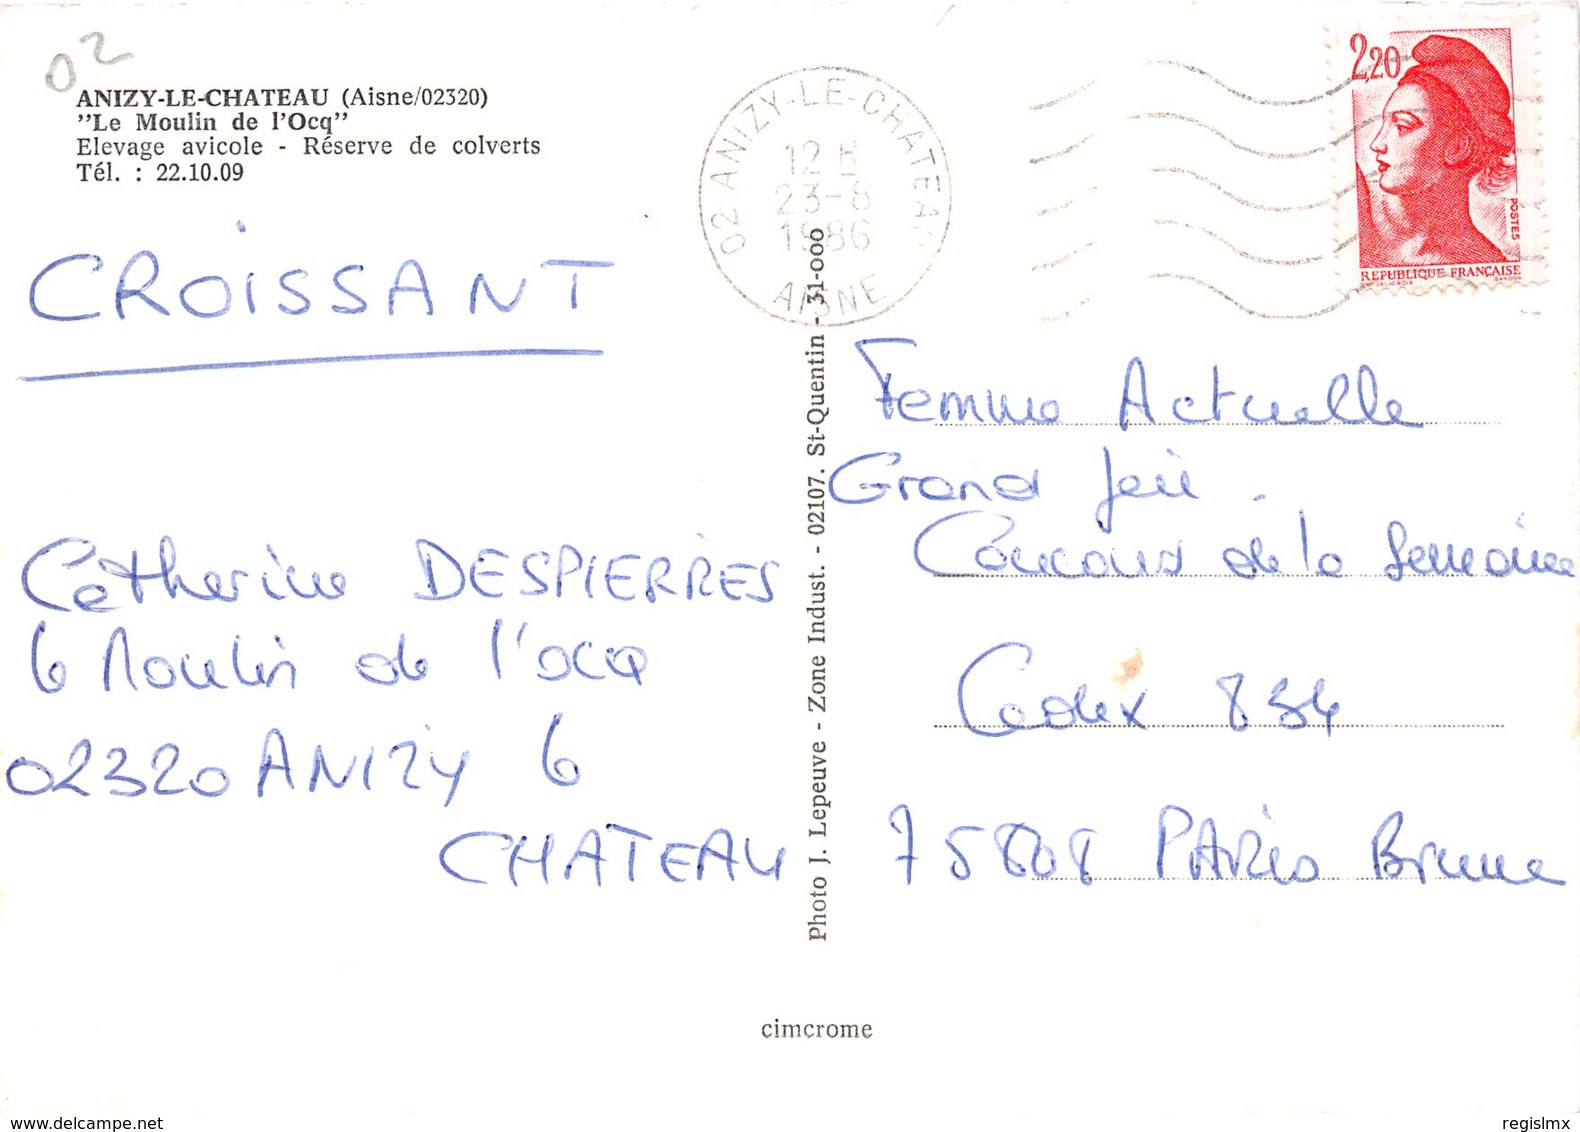 02
ANIZY-LE-CHATEAU (Aisne/02320)
"Le Moulin de l'Ocq"
Elevage avicole - Réserve de colverts
Tél. : 22.10.09
CROISSANT
Catherine DESPIERRES
6 Moulin de l'ocq
02320 ANIZY 6
CHATEAU
Photo J. Lepeuve - Zone Indust. - 02107. St-Quentin - 31-000
02 ANIZY-LE-CHATEAU
12 H
23-8
1986
AISNE
2,20
POSTES
REPUBLIQUE FRANÇAISE
D'AP DELACROIX GANDON
Femme Actuelle
Grand Jeu
Concours de la Semaine
Cedex 834
75808 PARis Brune
cimcrome
www.delcampe.net
regislmx